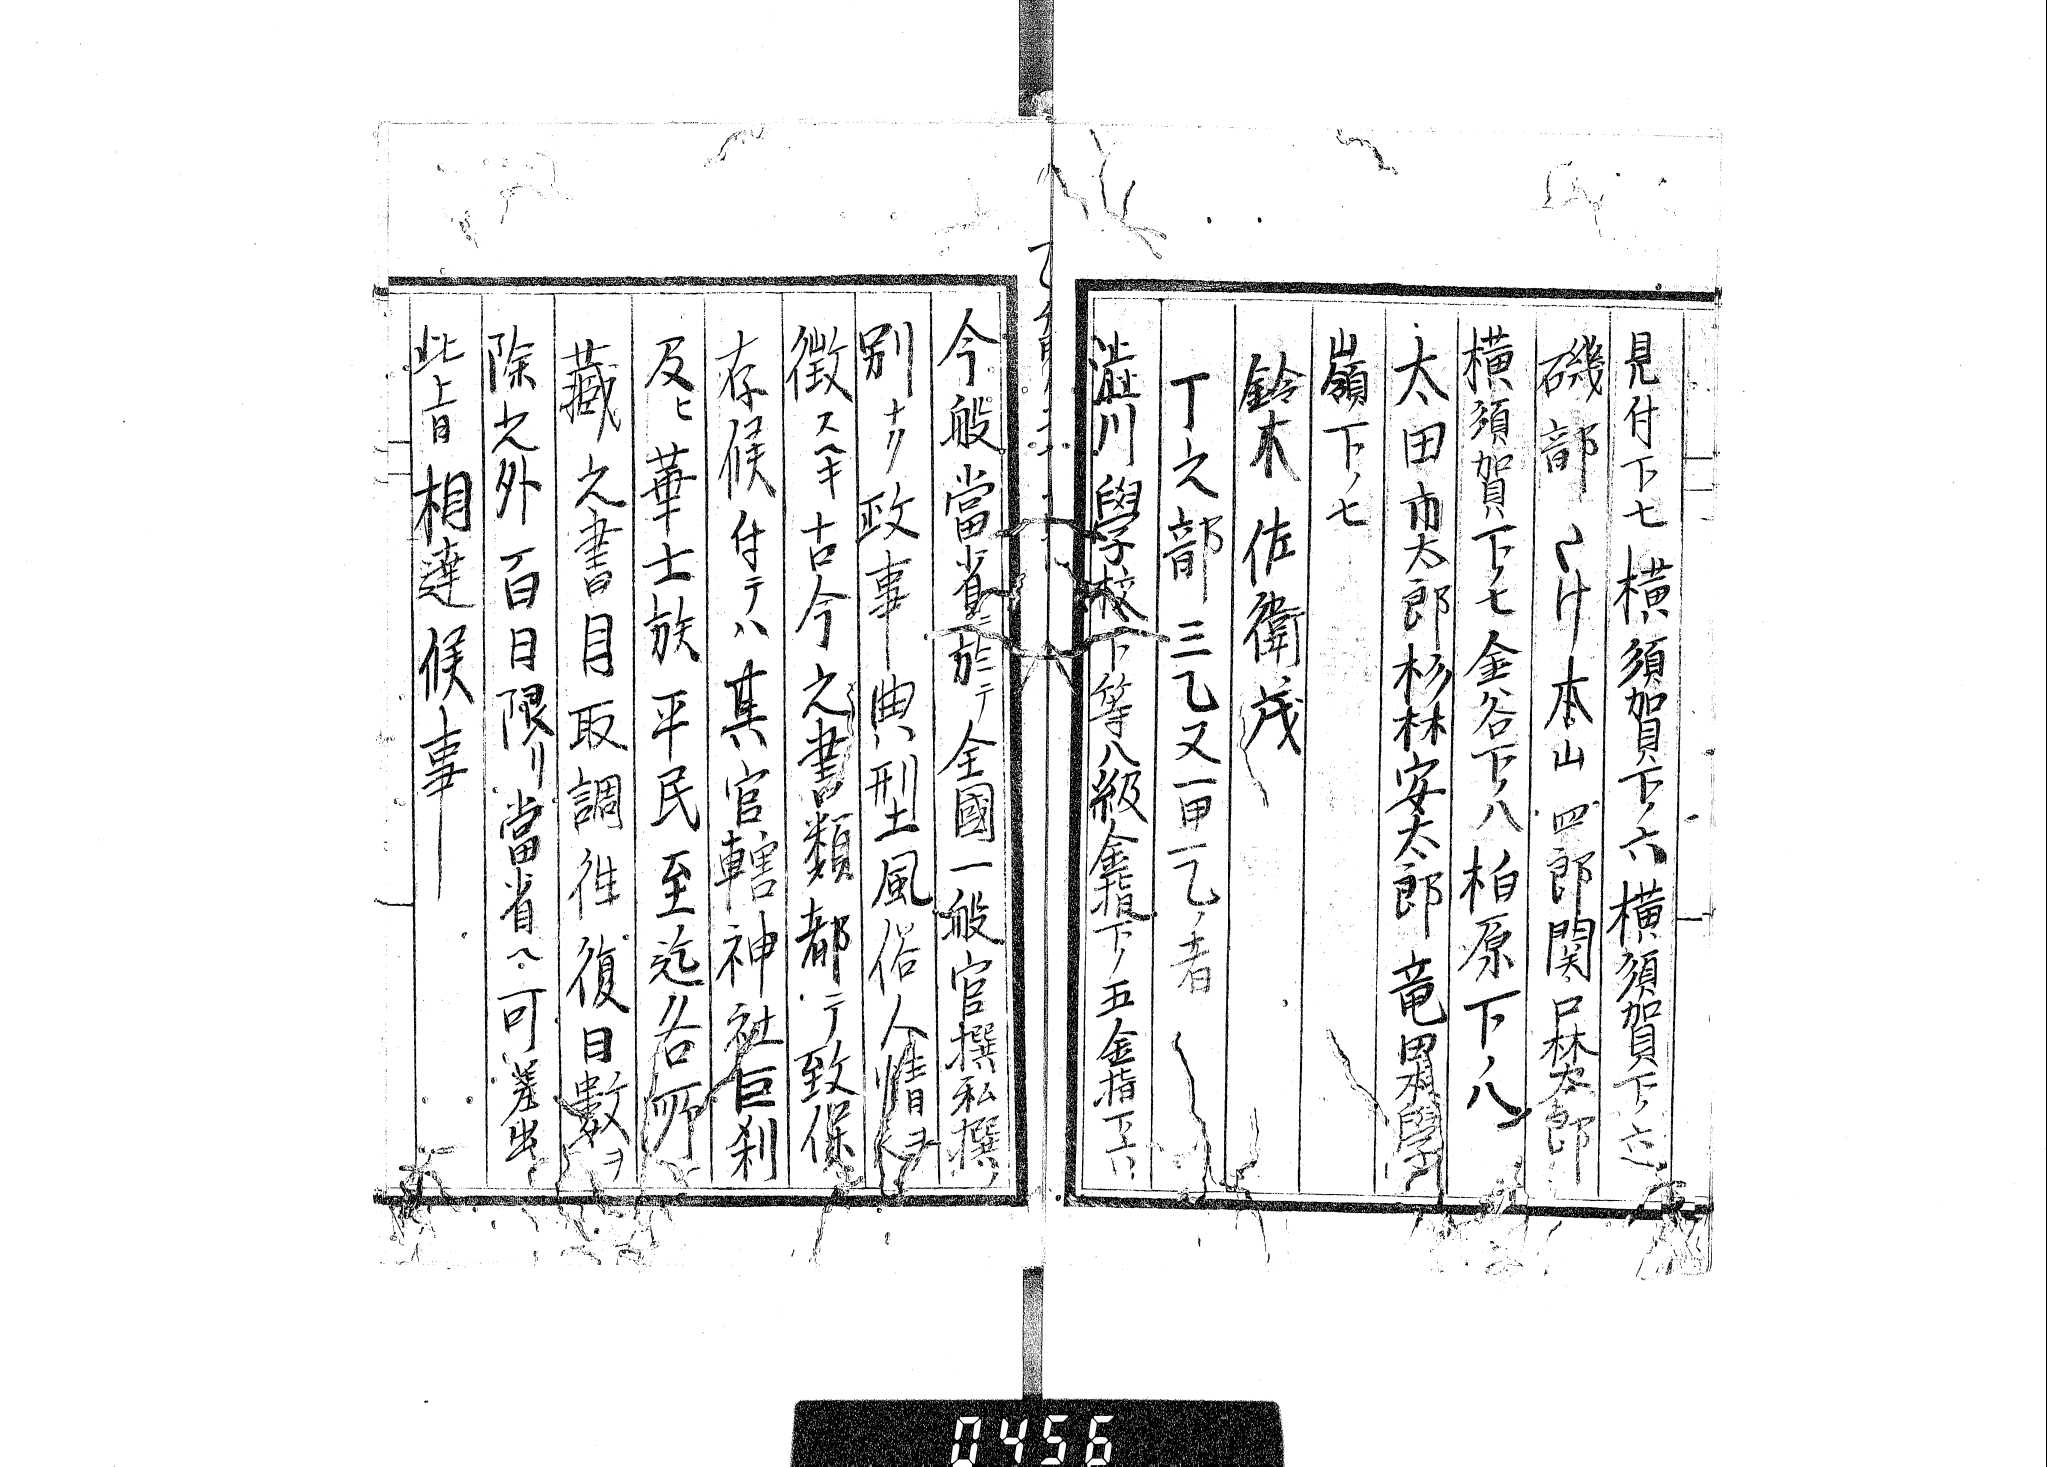 見付下七横須賀下ノ六横須賀下ノ六
磯部 さけ本山四郎関口林太郎
横須賀下ノ七金谷下ノ八柏原下ノ八
太田市太郎杉林安太郎竜田村學
嶺下ノ七
鈴木佐衛茂
丁之部三乙又一甲一乙ノ者
澁川學校下等八級金指下ノ五金指下六
今般當省ニ於テ全國一般官撰私撰ノ
別ナク政事典型土風俗人情ヲ
徴スヘキ古今之書類都テ致保
存候付テハ其官轄神社巨刹
及ヒ華士族平民至迄各所
藏之書目取調往復日數ヲ
除之外百日限リ當省ヘ可差出
此旨相達候事
0456